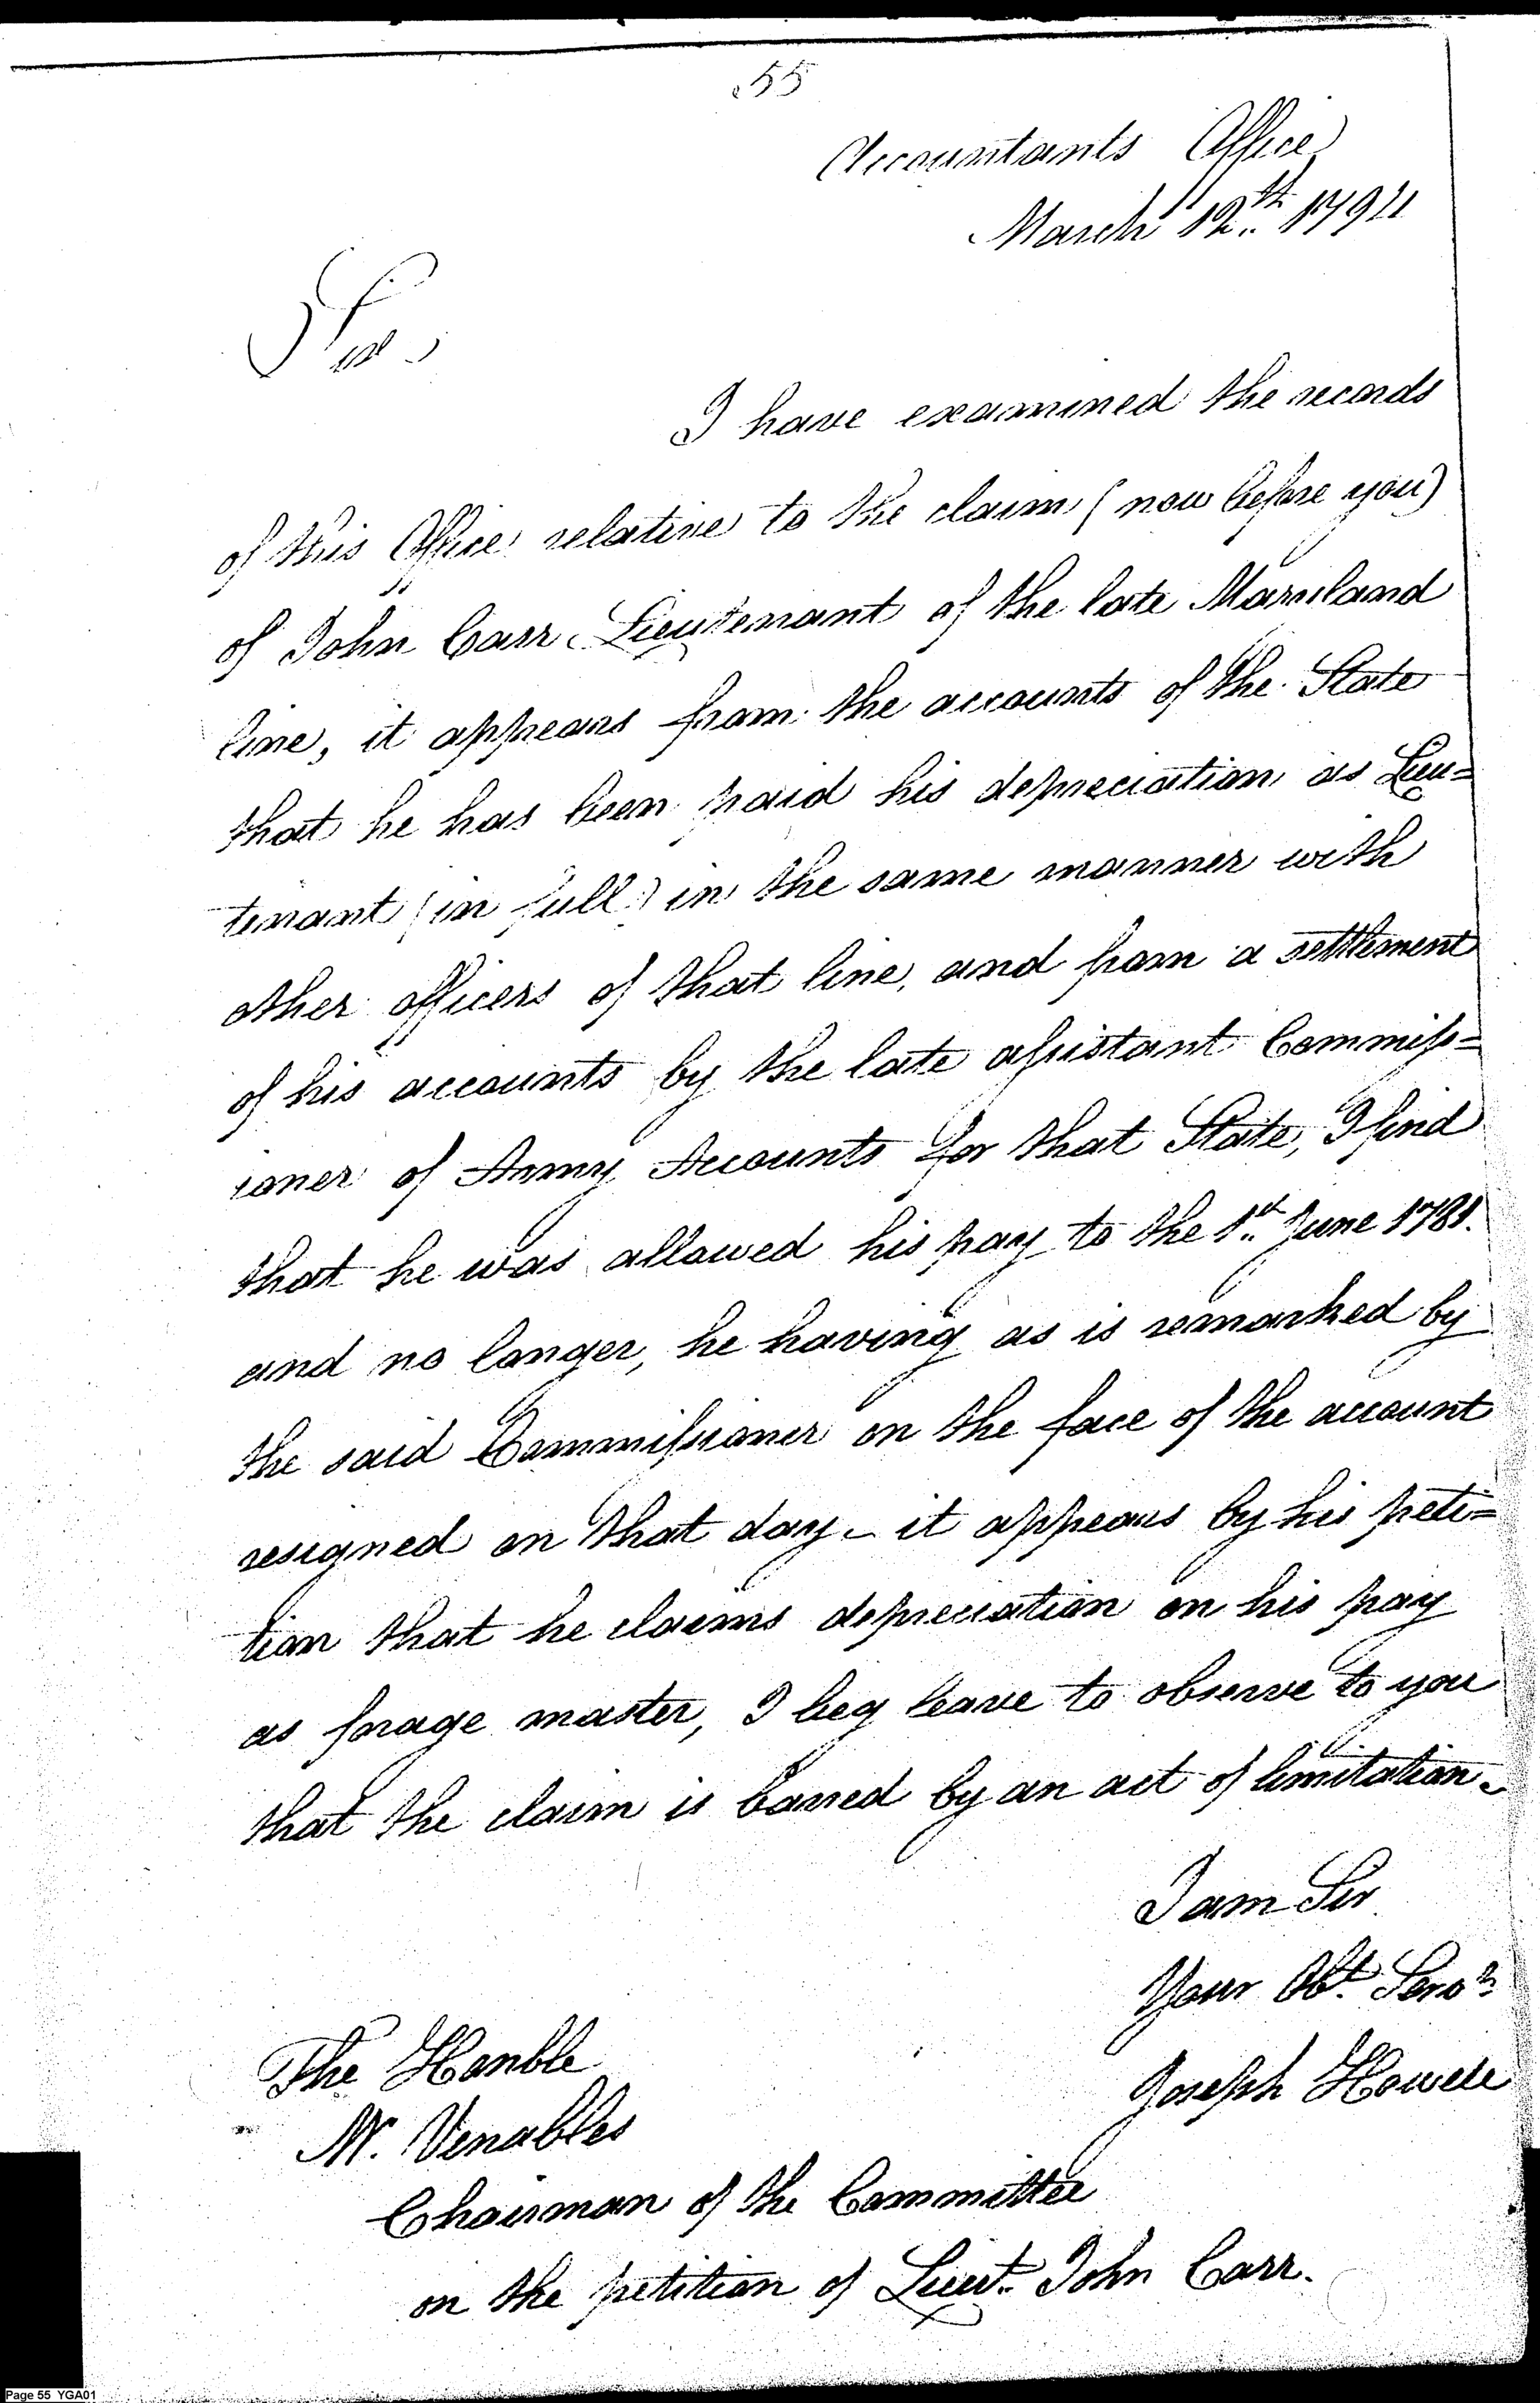 55
Accountants Office
March 12th 1794
Sir
I have examined the records
of this Office relative to the claim (now before you)
of John Carr Lieutenant of the late Maryland
line, it appears from the accounts of the State
that he has been paid his depreciation as Lieu=
tenant (in full) in the same manner with
other officers of that line, and from a settlement
of his accounts by the late assistant Commiss=
ioner of Army Accounts for that State, I find
that he was allowed his pay to the 1st June 1781.
and no longer, he having as is remarked by
the said Commissioner on the face of the account
resigned on that day - it appears by his peti=
tion that he claims depreciation on his pay
as forage master, I beg leave to observe to you
that the claim is barred by an act of limitation.
I am Sir
Your Obt. Servt.
Joseph Howell
The Honble
Mr. Venables
Chairman of the Committee
on the petition of Lieut. John Carr.
Page 55 YGA01